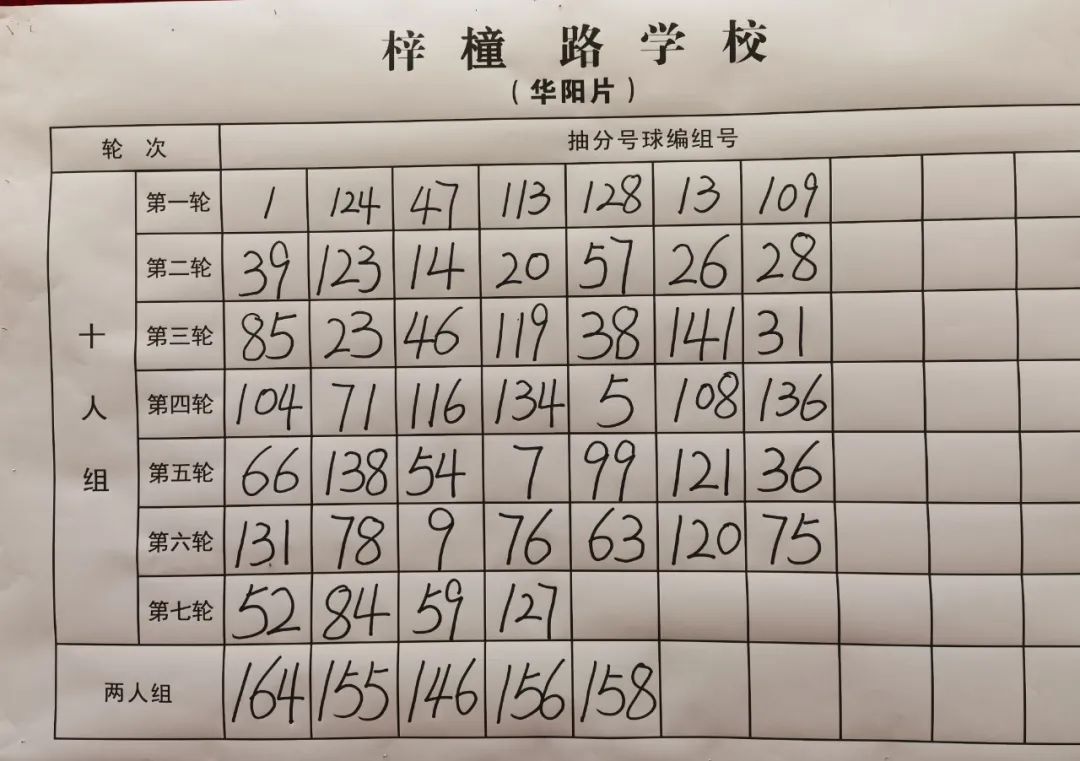 梓橦路学校
(华阳片)
轮次 抽分号球编组号
十人组
第一轮 1 124 47 113 128 13 109
第二轮 39 123 14 20 57 26 28
第三轮 85 23 46 119 38 141 31
第四轮 104 71 116 134 5 108 136
第五轮 66 138 54 7 99 121 36
第六轮 131 78 9 76 63 120 75
第七轮 52 84 59 127
两人组 164 155 146 156 158